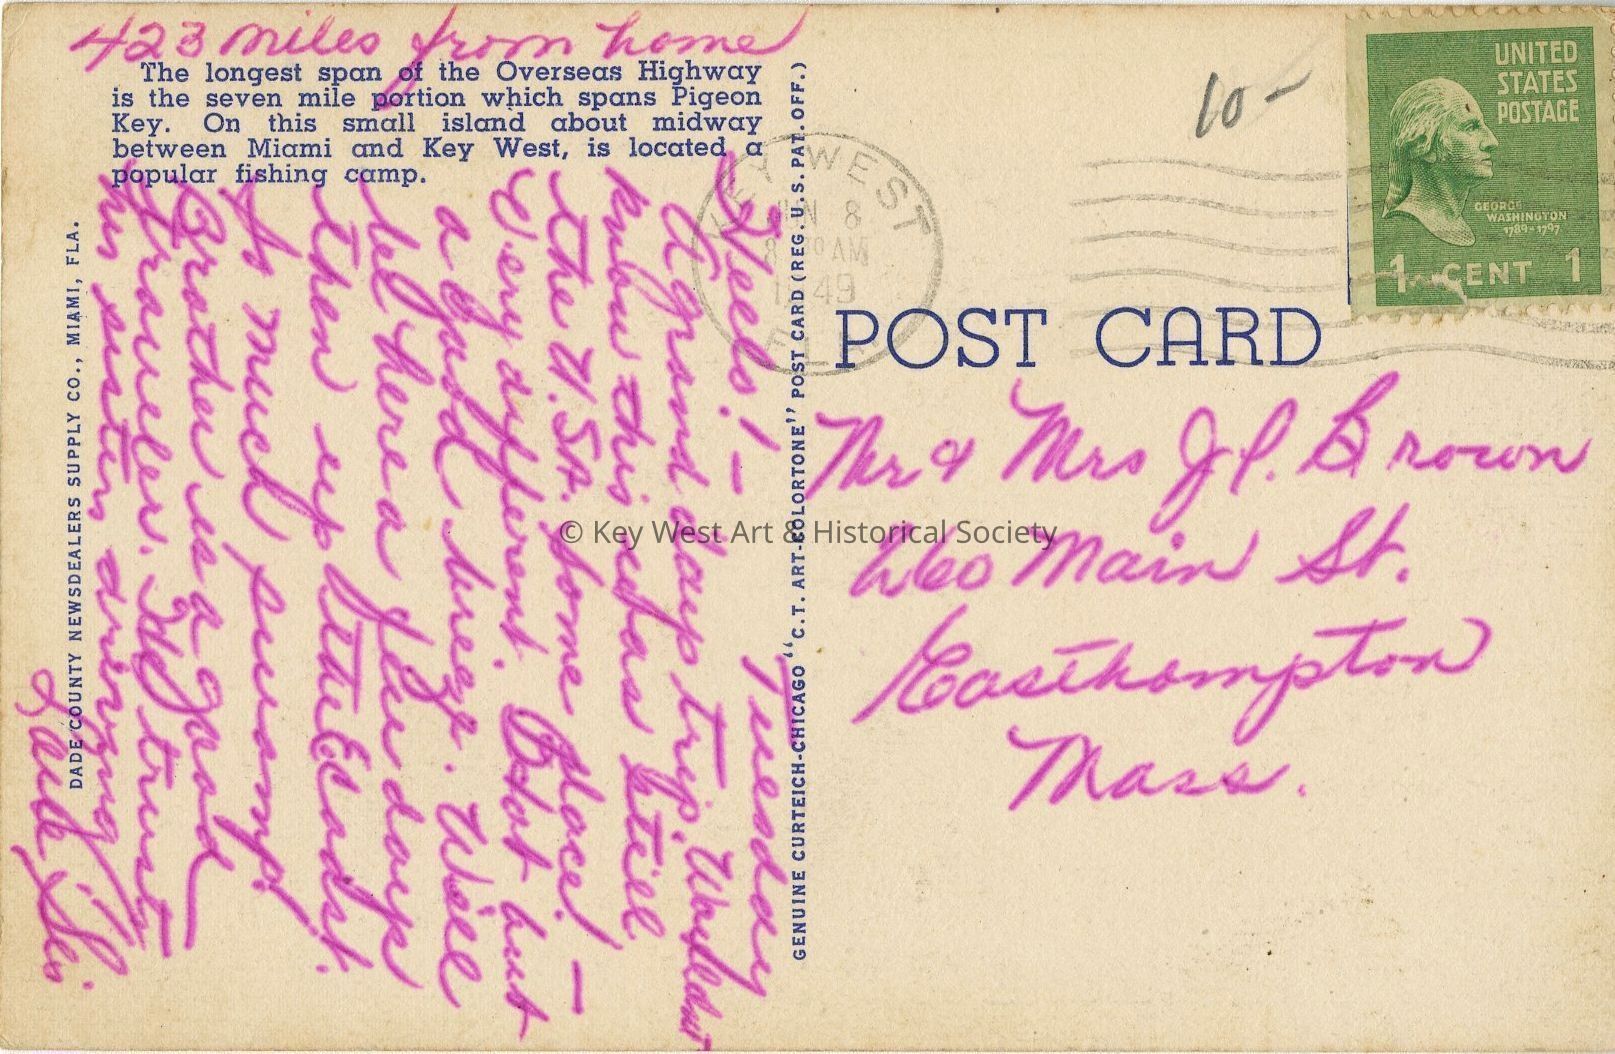 423 miles from home
The longest span of the Overseas Highway
is the seven mile portion which spans Pigeon
Key. On this small island about midway
between Miami and Key West, is located a
popular fishing camp.
Tuesday
Heels! —
A grand day trip. Wouldnt
know this was still
the U.S.A. Some place! —
Very different. Hot but
a good breeze. Will
be here a few days
then up the E Coast.
So much swamp.
Brother is a good
traveler. He trusts
his sister driving
Love, Sis.
DADE COUNTY NEWSDEALERS SUPPLY CO., MIAMI, FLA.
GENUINE CURTEICH-CHICAGO "C.T. ART-COLORTONE" POST CARD (REG. U.S. PAT. OFF.)
KEY WEST
JUN 8
AM
1949
FLA
10-
UNITED
STATES
POSTAGE
GEORGE
WASHINGTON
1789-1797
1 CENT 1
POST CARD
Mr & Mrs J.P. Brown
260 Main St.
Easthampton
Mass.
© Key West Art & Historical Society